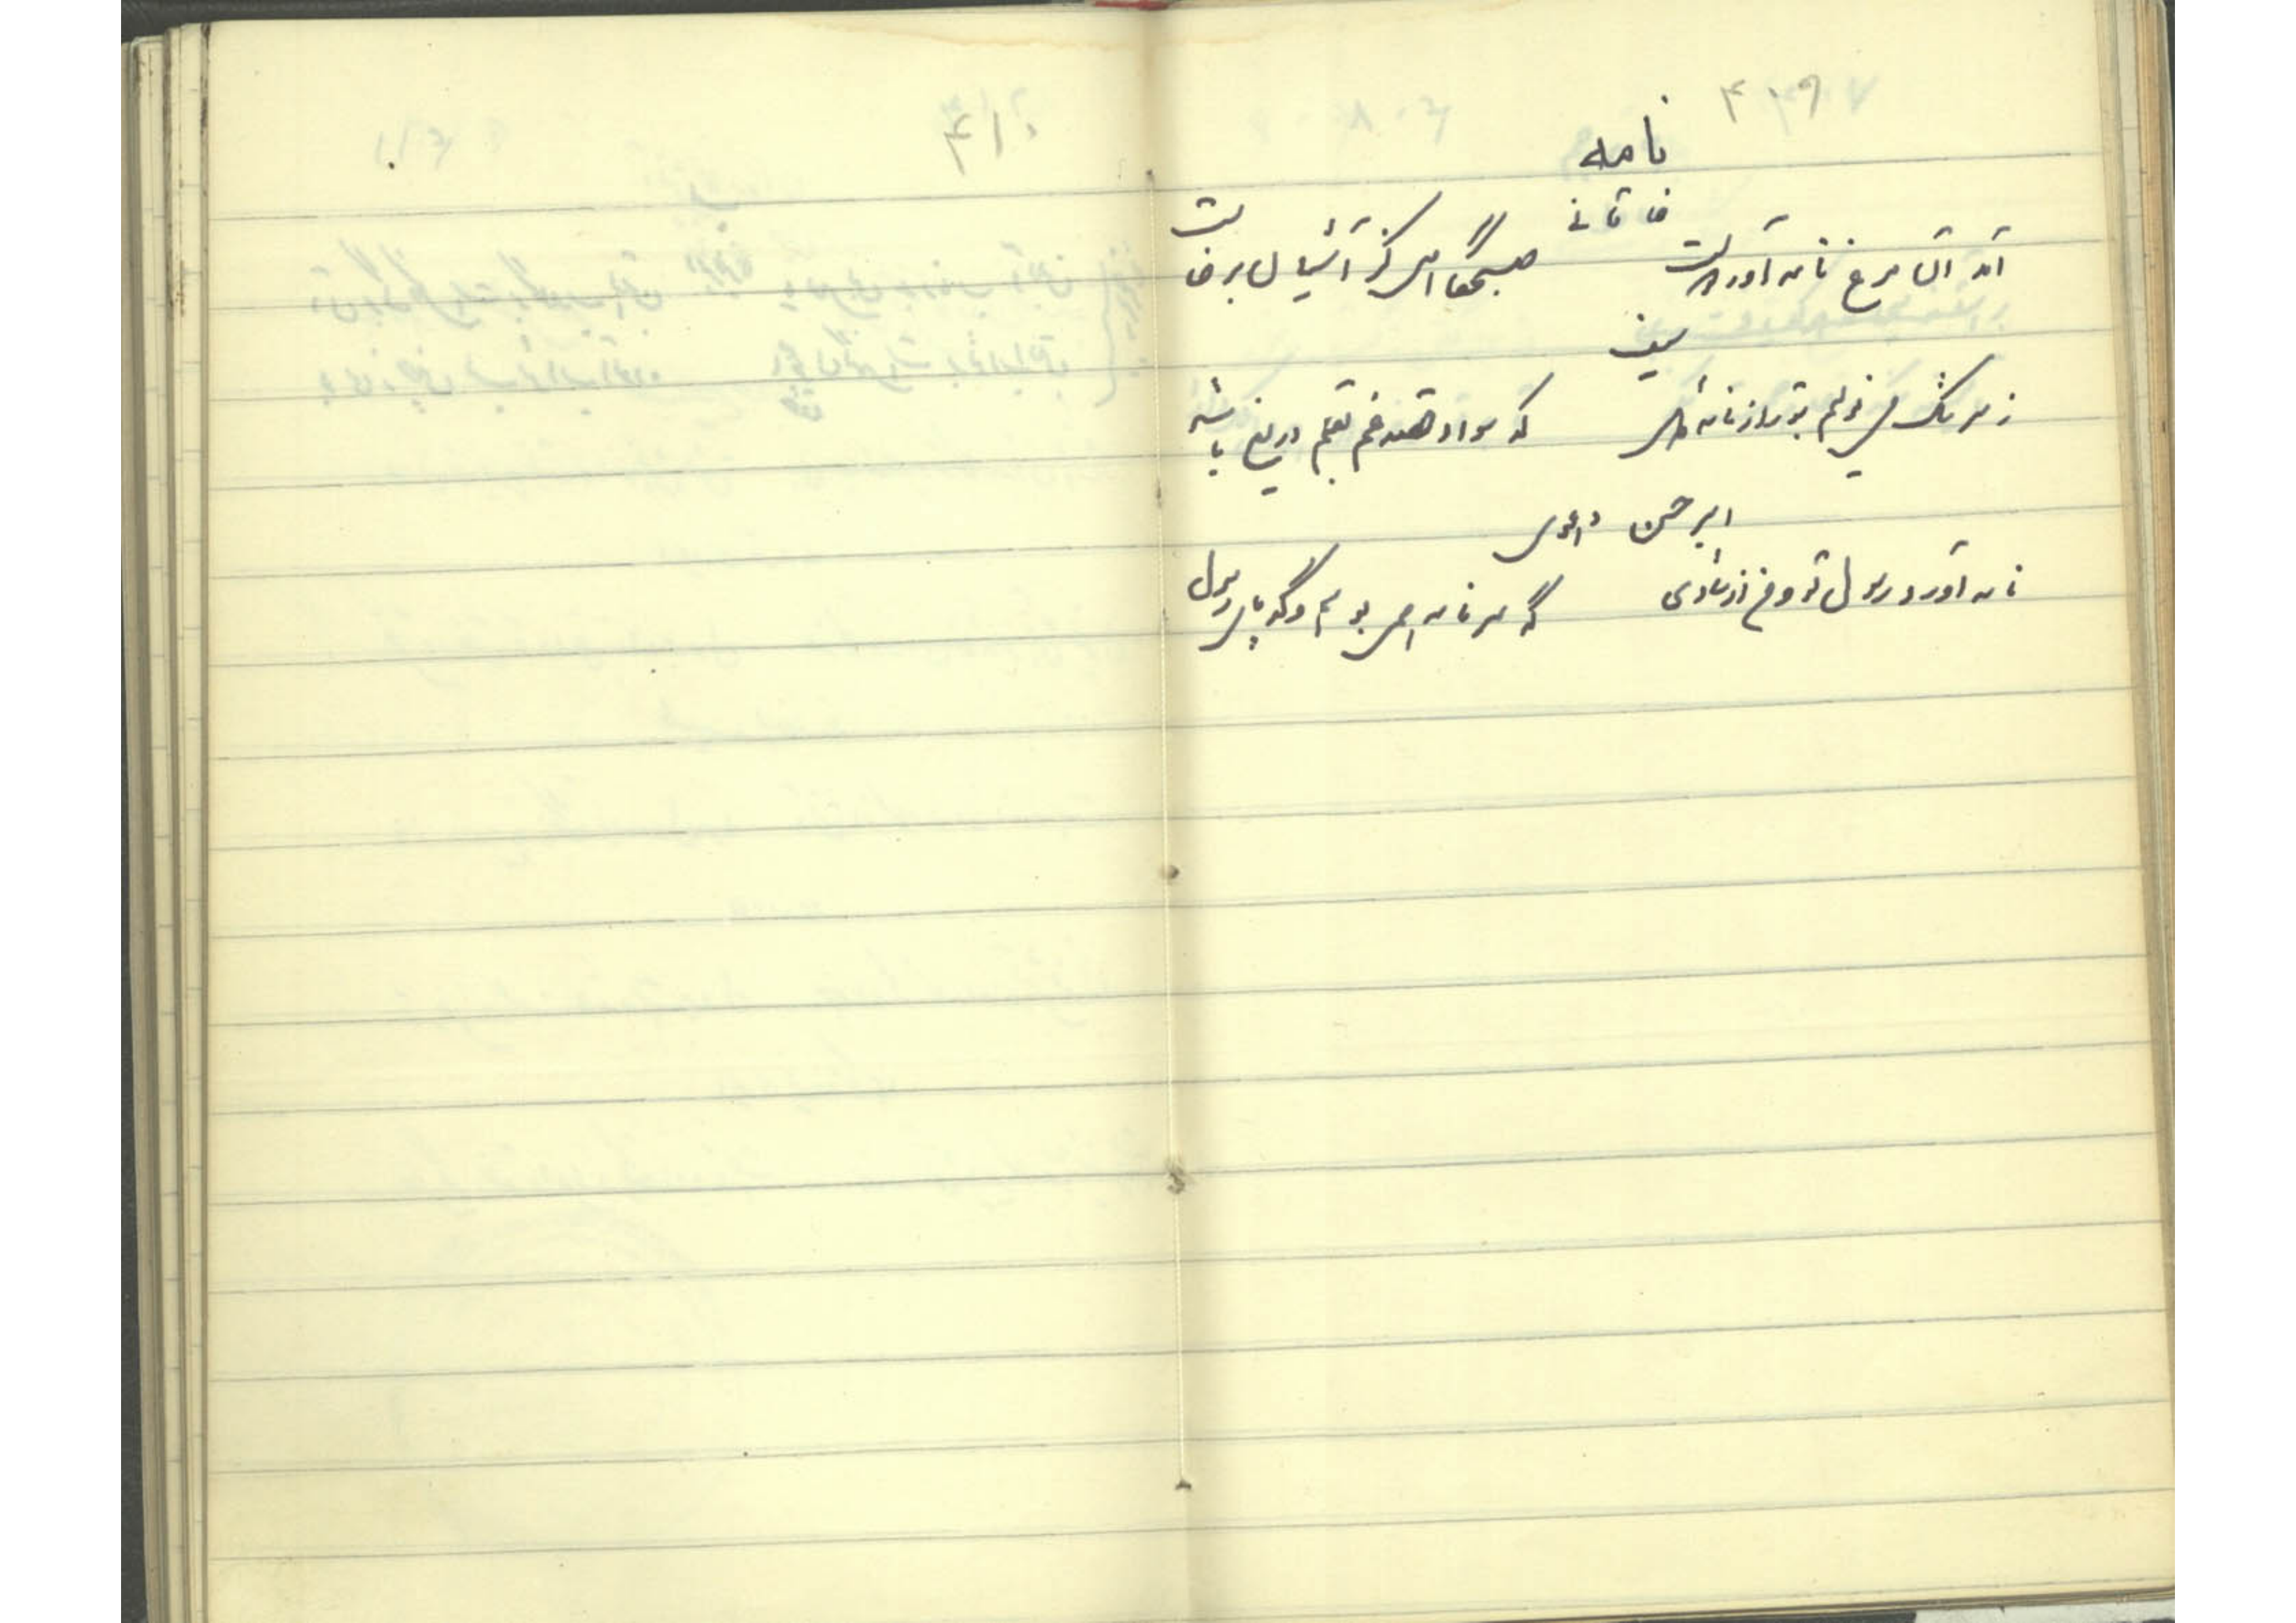 ۴۰۹
نامه
خاقانی
آمد آن مرغ نامه آور دوست صبحگاهی کز آشیان برخاست
سیف
ز سرشک می نویسم بتو راز نامه که سواد قصه غم بقلم دریغ باشد
امیر حسن دهلوی
نامه آورد رسول تو و من از شادی گه سر نامه همی بوسم و گه پای رسول
۴۱۰